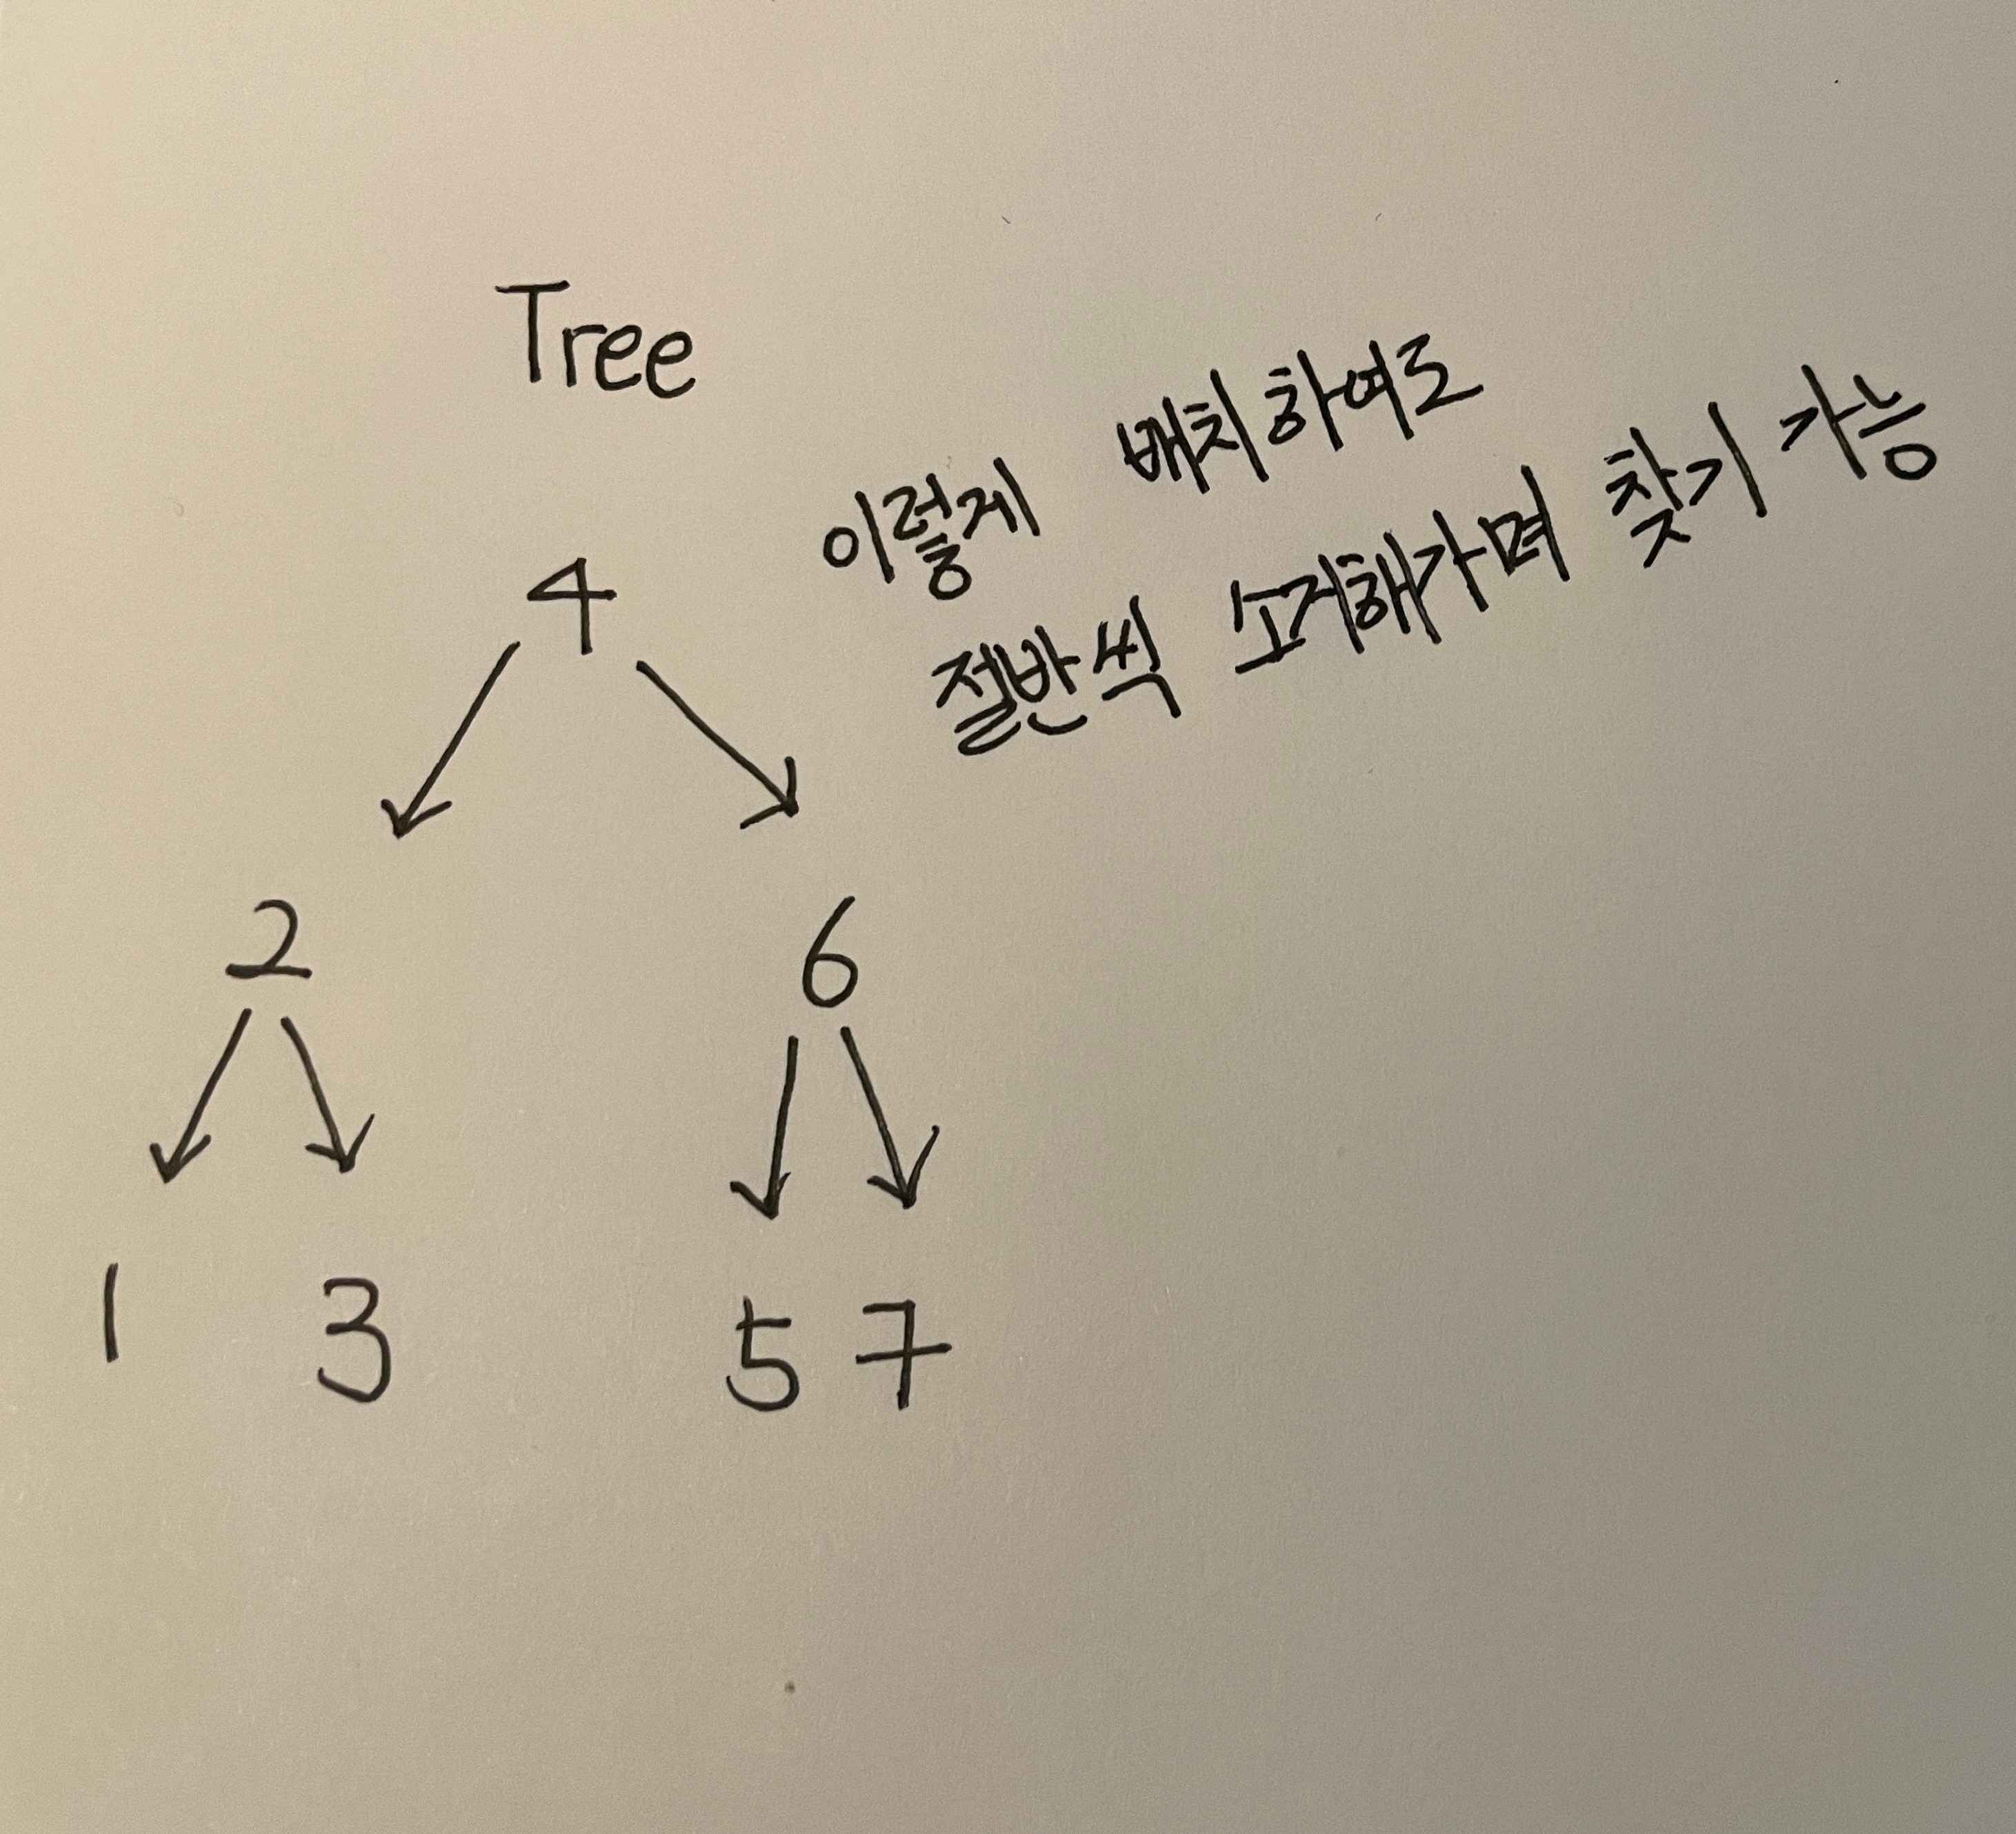 Tree
이렇게 배치하여도
절반씩 소거해가며 찾기 가능
4
2 6
1 3 5 7